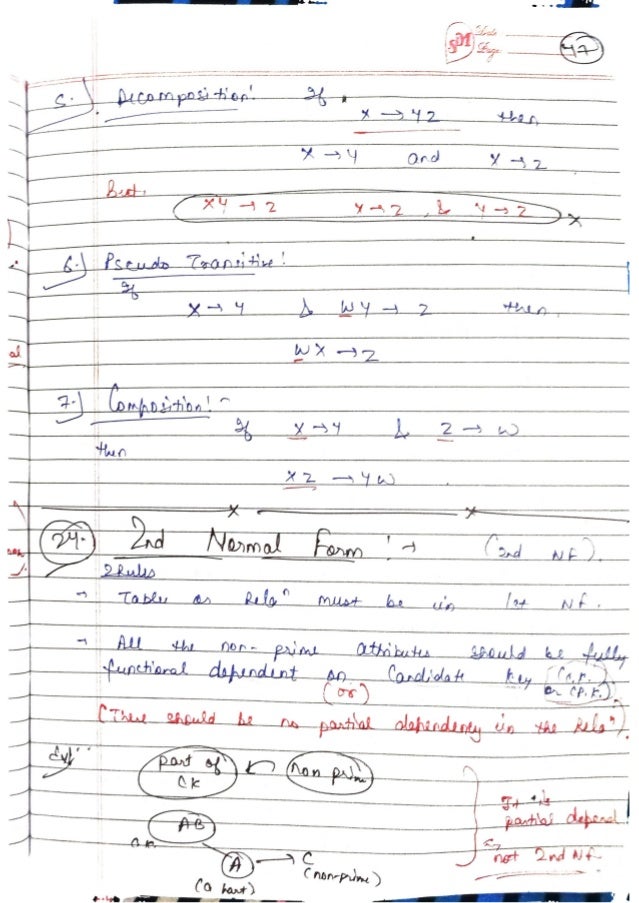 SM Date
Page 47
5.) Decomposition! If
X → YZ then
X → Y and X → Z
But. XY → Z X → Z & Y → Z X
6.) Pseudo Transitive!
If
X → Y & WY → Z then
WX → Z
7.) Composition! -
If X → Y & Z → W
then
XZ → YW
24. 2nd Normal Form ! → (2nd NF).
2 Rules
→ Table or Relaⁿ must be in 1st NF.
→ All the non-prime attributes should be fully
functional dependent on Candidate key (C.K.)
or (P.K.)
(or)
(There should be no partial dependency in the Relaⁿ).
part of CK ← non prime
AB
A → C
(non-prime)
(a part)
It is
partial depend
not 2nd NF